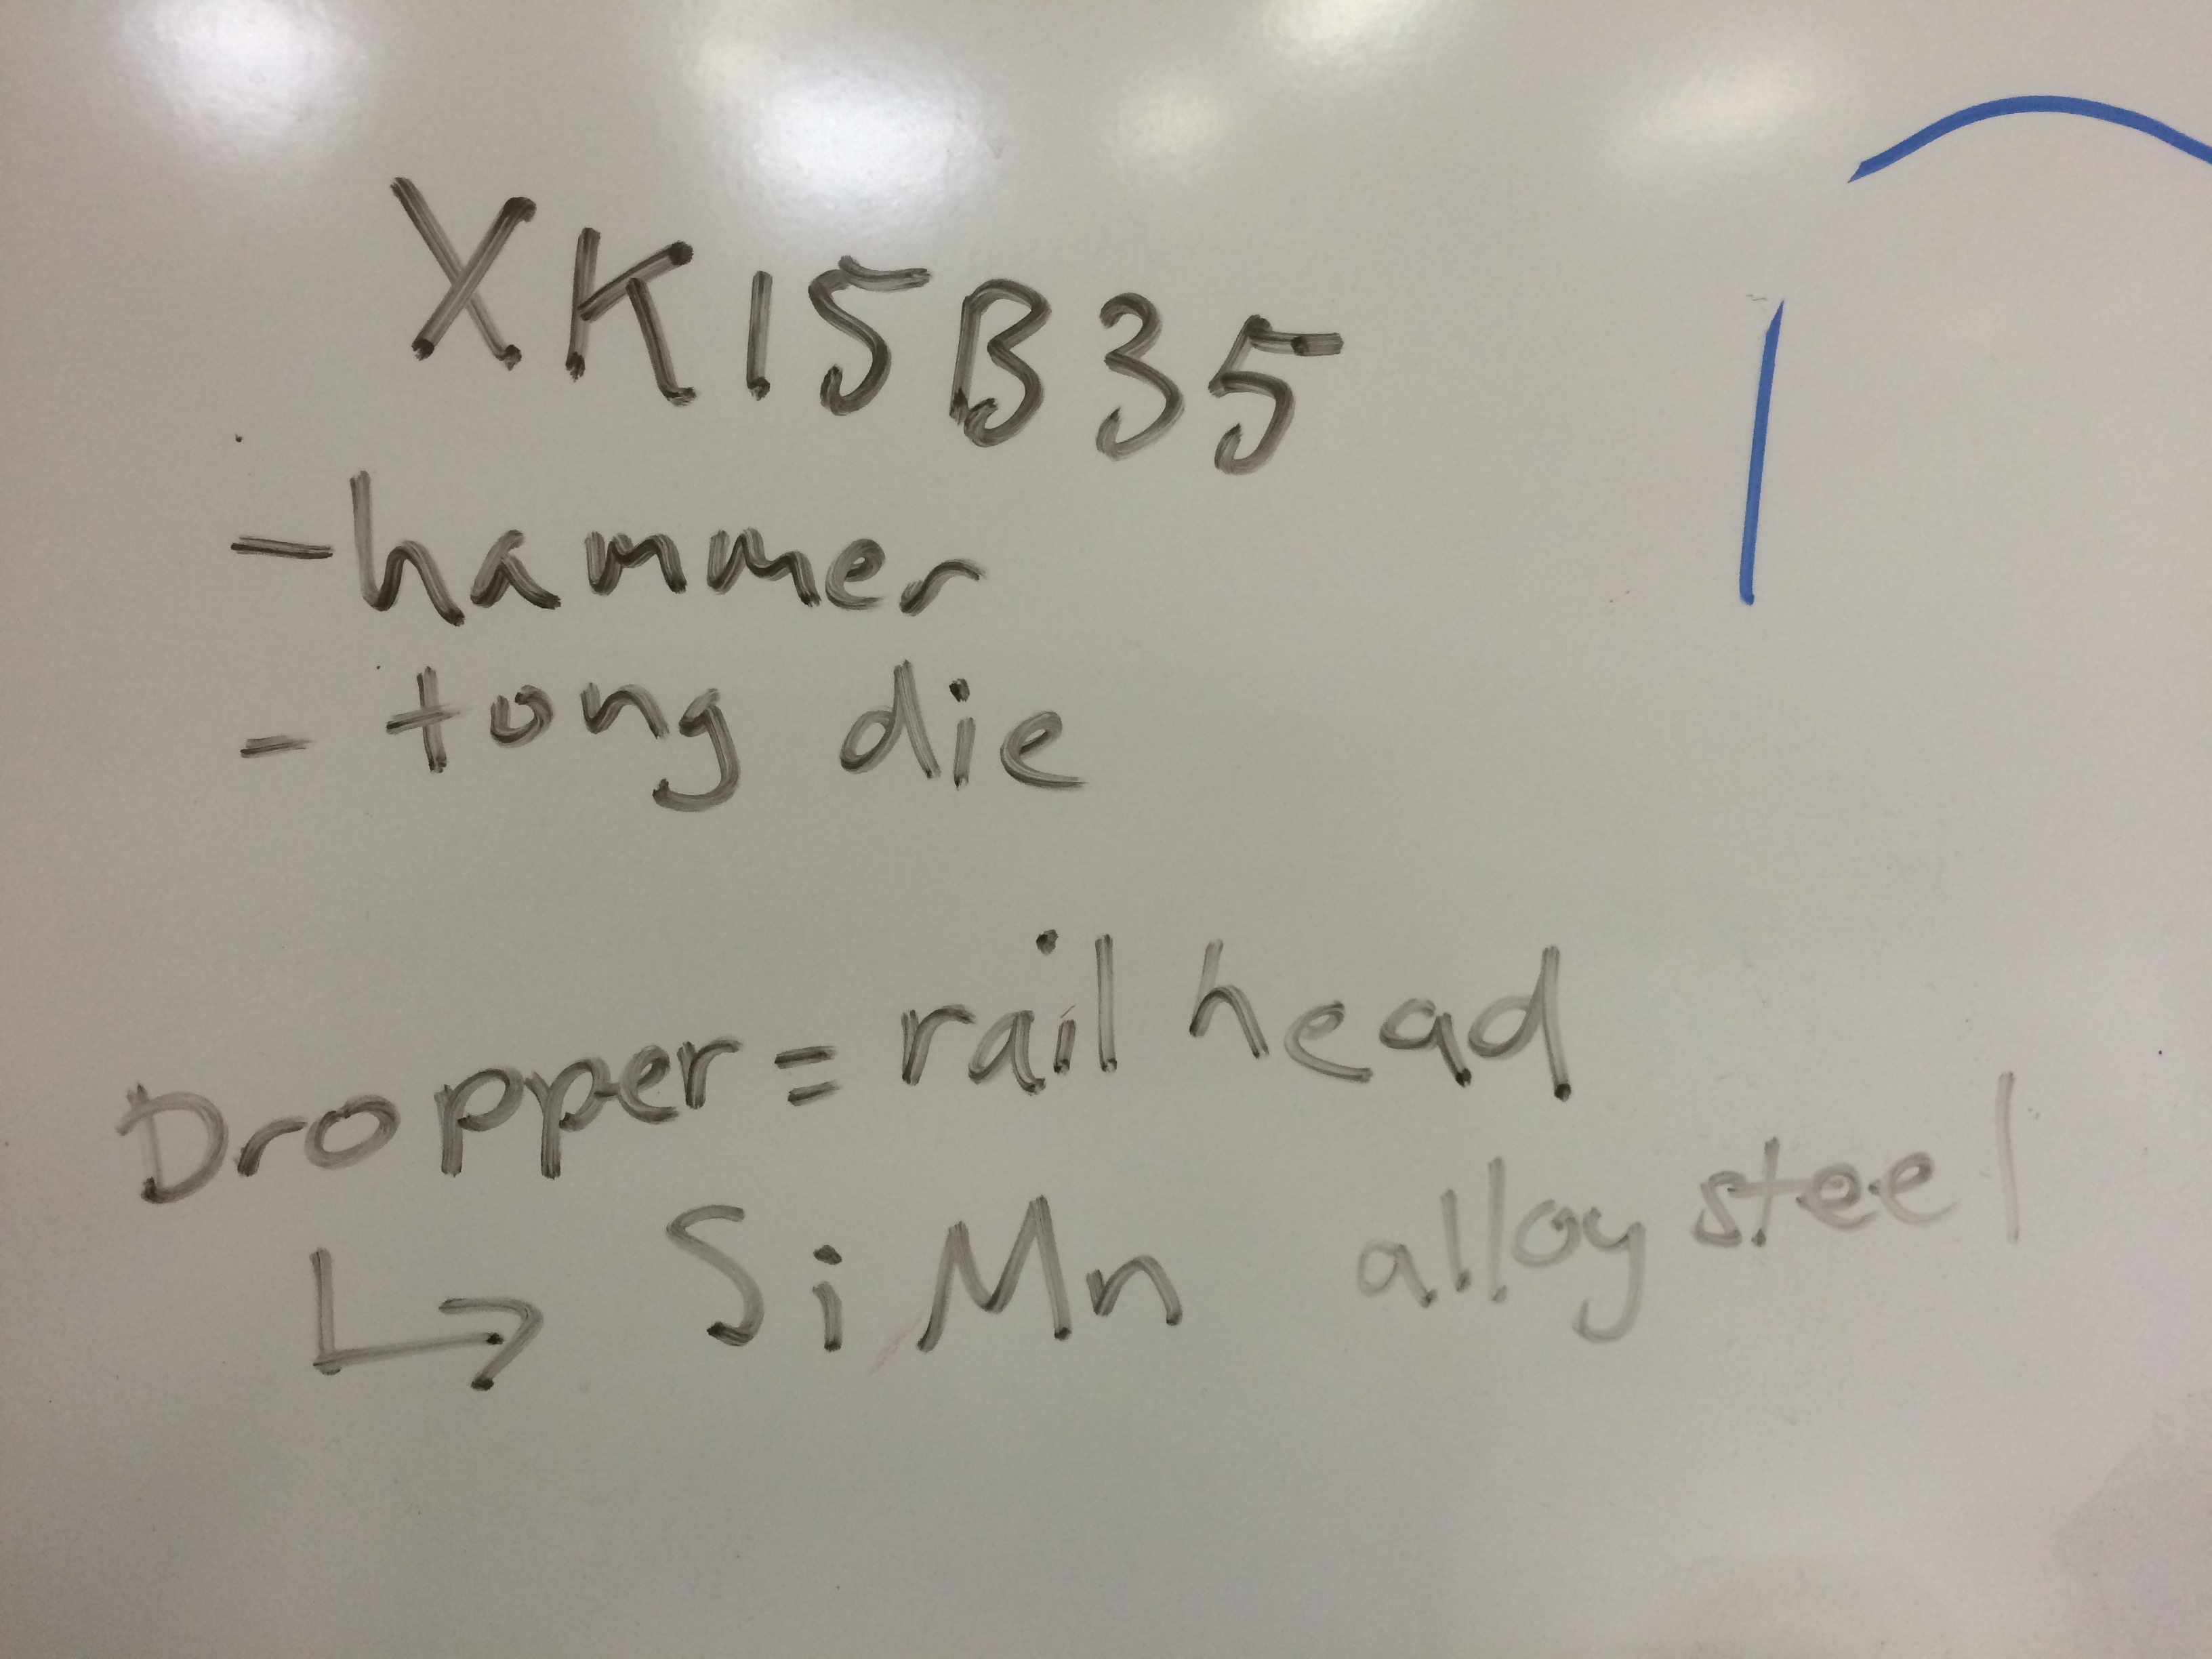 XK15B35
- hammer
- tong die
Dropper = rail head
↳ SiMn alloy steel